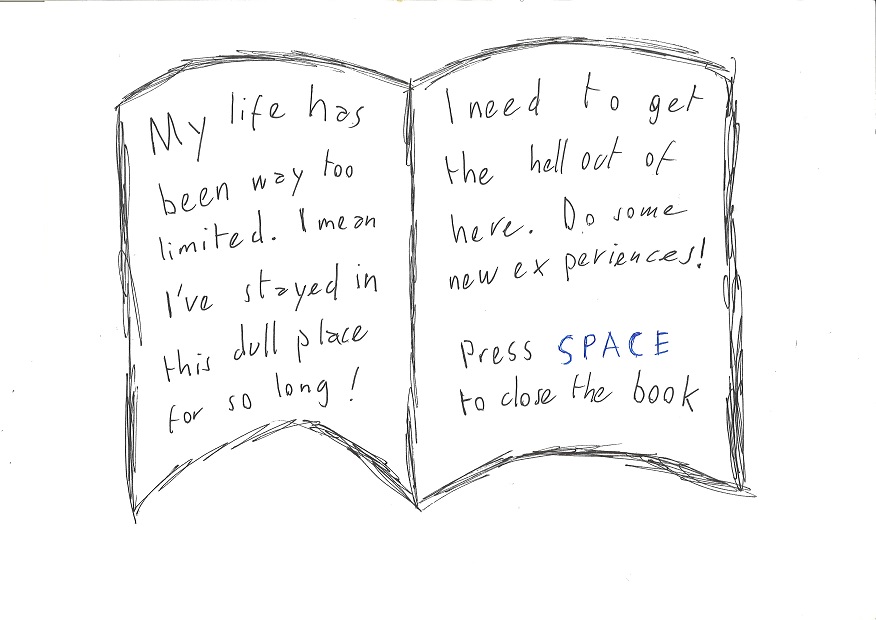 My life has
been way too
limited. I mean
I've stayed in
this dull place
for so long!
I need to get
the hell out of
here. Do some
new experiences!
Press SPACE
to close the book